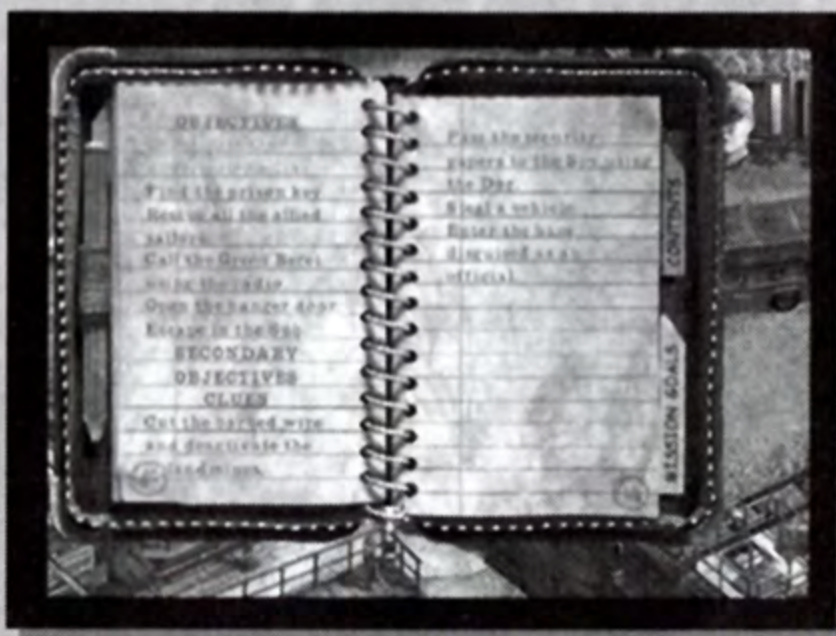 OBJECTIVES
Find the prison key
Rescue all the allied
sailors
Call the Green Beret
using the radio
Open the hanger door
Escape in the
SECONDARY
OBJECTIVES
CLUES
Cut the barbed wire
and deactivate the
landmines
Pass the security
papers to the Spy using
the Dog
Steal a vehicle
Enter the base
disguised as an
official
CONTENTS
MISSION GOALS